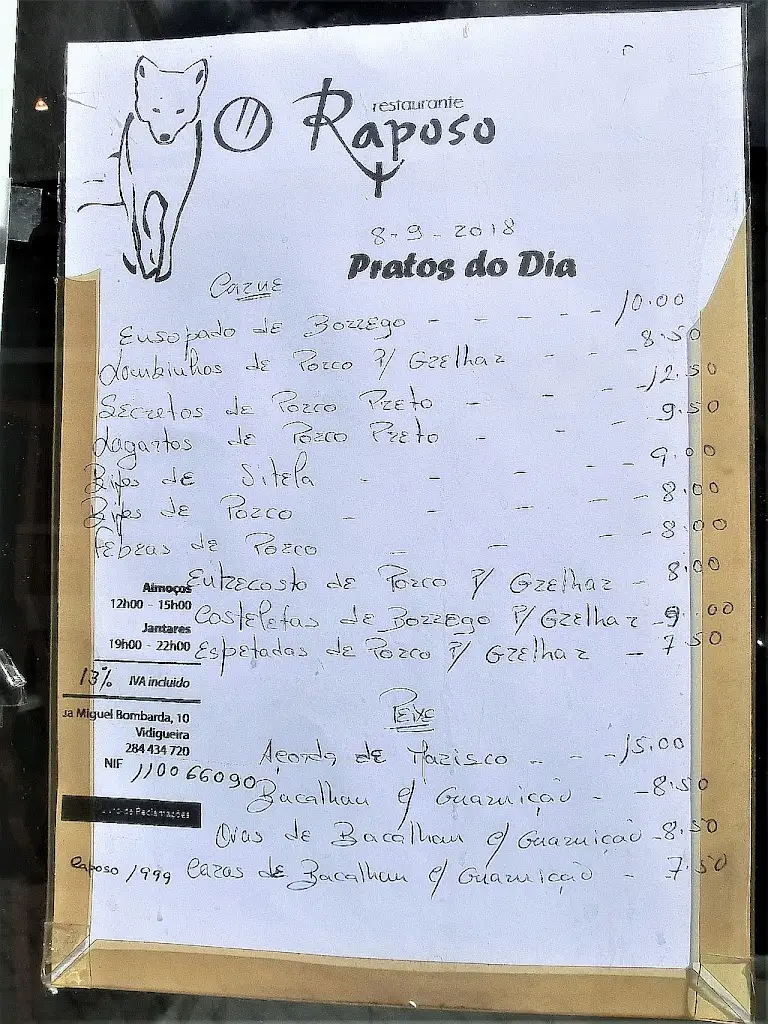 restaurante
O Raposo
8-9-2018
Pratos do Dia
Carne
Ensopado de Borrego - - - - - 10.00
Lombinhos de Porco P/ Grelhar - - - 8.50
Secretos de Porco Preto - - - - 12.50
Lagartos de Porco Preto - - - 9.50
Bifes de Sitela - - - - - 9.00
Bifes de Porco - - - - - 8.00
Febras de Porco - - - 8.00
Entrecosto de Porco P/ Grelhar - 8.00
Costeletas de Borrego P/ Grelhar - 9.00
Espetadas de Porco P/ Grelhar - 7.50
Almoços
12h00 - 15h00
Jantares
19h00 - 22h00
13% IVA incluido
ua Miguel Bombarda, 10
Vidigueira
284 434 720
NIF 110066090
Livro de Reclamações
Raposo 1999
Peixe
Açorda de Marisco - - - 15.00
Bacalhau c/ Guarnição - - 8.50
Ovas de Bacalhau c/ Guarnicao - 8.50
Caras de Bacalhau c/ Guarnição - 7.50